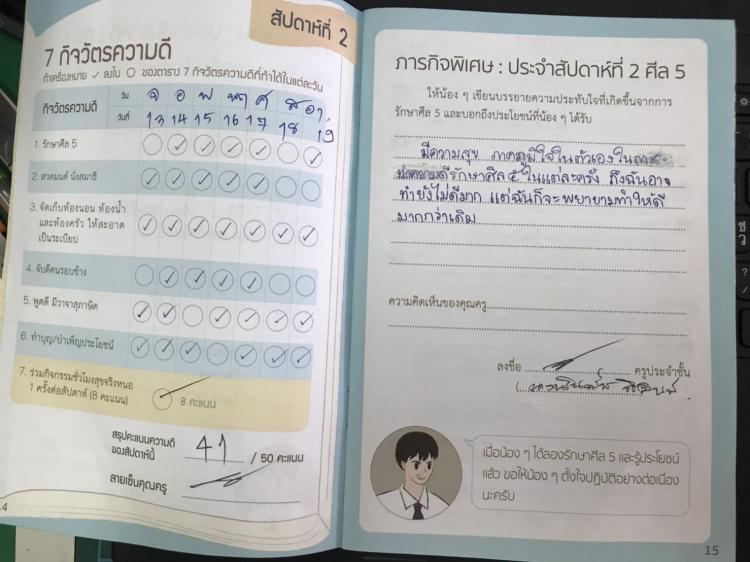 สัปดาห์ที่ 2
7 กิจวัตรความดี
ทำเครื่องหมาย ✓ ลงใน ○ ของตาราง 7 กิจวัตรความดีที่ทำได้ในแต่ละวัน
กิจวัตรความดี
วัน จ อ พ พฤ ศ ส อา.
วันที่ 13 14 15 16 17 18 19
1. รักษาศีล 5
2. สวดมนต์ นั่งสมาธิ
3. จัดเก็บห้องนอน ห้องน้ำ
และห้องครัว ให้สะอาด
เป็นระเบียบ
4. จับดีคนรอบข้าง
5. พูดดี มีวาจาสุภาษิต
6. ทำบุญ/บำเพ็ญประโยชน์
7. ร่วมกิจกรรมชั่วโมงสุขจริงหนอ
1 ครั้งต่อสัปดาห์ (8 คะแนน)
8 คะแนน
สรุปคะแนนความดี
ของสัปดาห์นี้ 41 / 50 คะแนน
ลายเซ็นคุณครู
ภารกิจพิเศษ : ประจำสัปดาห์ที่ 2 ศีล 5
ให้น้อง ๆ เขียนบรรยายความประทับใจที่เกิดขึ้นจากการ
รักษาศีล 5 และบอกถึงประโยชน์ที่น้อง ๆ ได้รับ
มีความสุข ภาคภูมิใจในตัวเองใน
ทำความดีรักษาศีล ๕ ในแต่ละครั้ง ถึงฉันอาจ
ทำยังไม่ดีมาก แต่ฉันก็จะพยายามทำให้ดี
มากกว่าเดิม
ความคิดเห็นของคุณครู
ลงชื่อ ครูประจำชั้น
เมื่อน้อง ๆ ได้ลองรักษาศีล 5 และรู้ประโยชน์
แล้ว ขอให้น้อง ๆ ตั้งใจปฏิบัติอย่างต่อเนื่อง
นะครับ
15